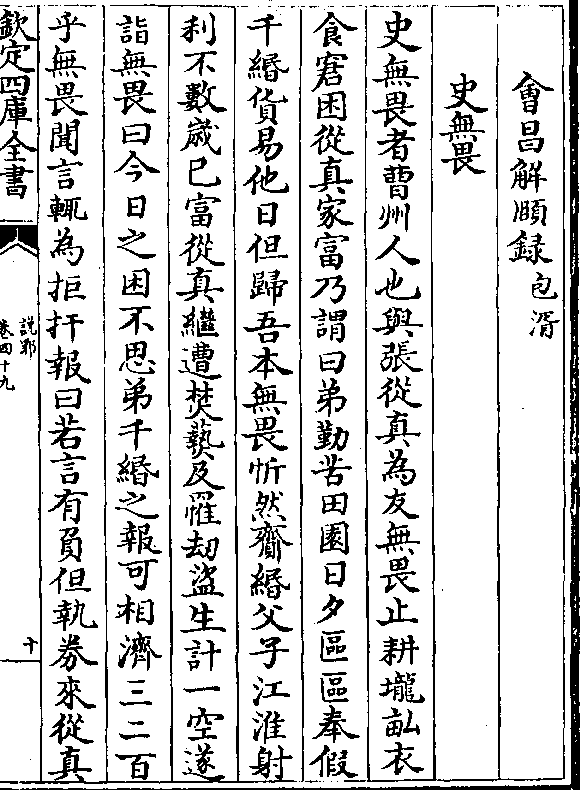 會昌解頤録包湑
史無畏
史無畏者曹州人也與張從真為友無畏止耕壠畝衣
食窘困從真家富乃謂曰弟勤苦田園日夕區區奉假
千緡貨易他日但歸吾本無畏忻然齎緡父子江淮射
利不數歲已富從真繼遭焚爇及罹刼盜生計一空遂
詣無畏曰今日之困不思弟千緡之報可相濟三二百
乎無畏聞言輒為拒扞報曰若言有負但執券來從真
欽定四庫全書
說郛
卷四十九
十